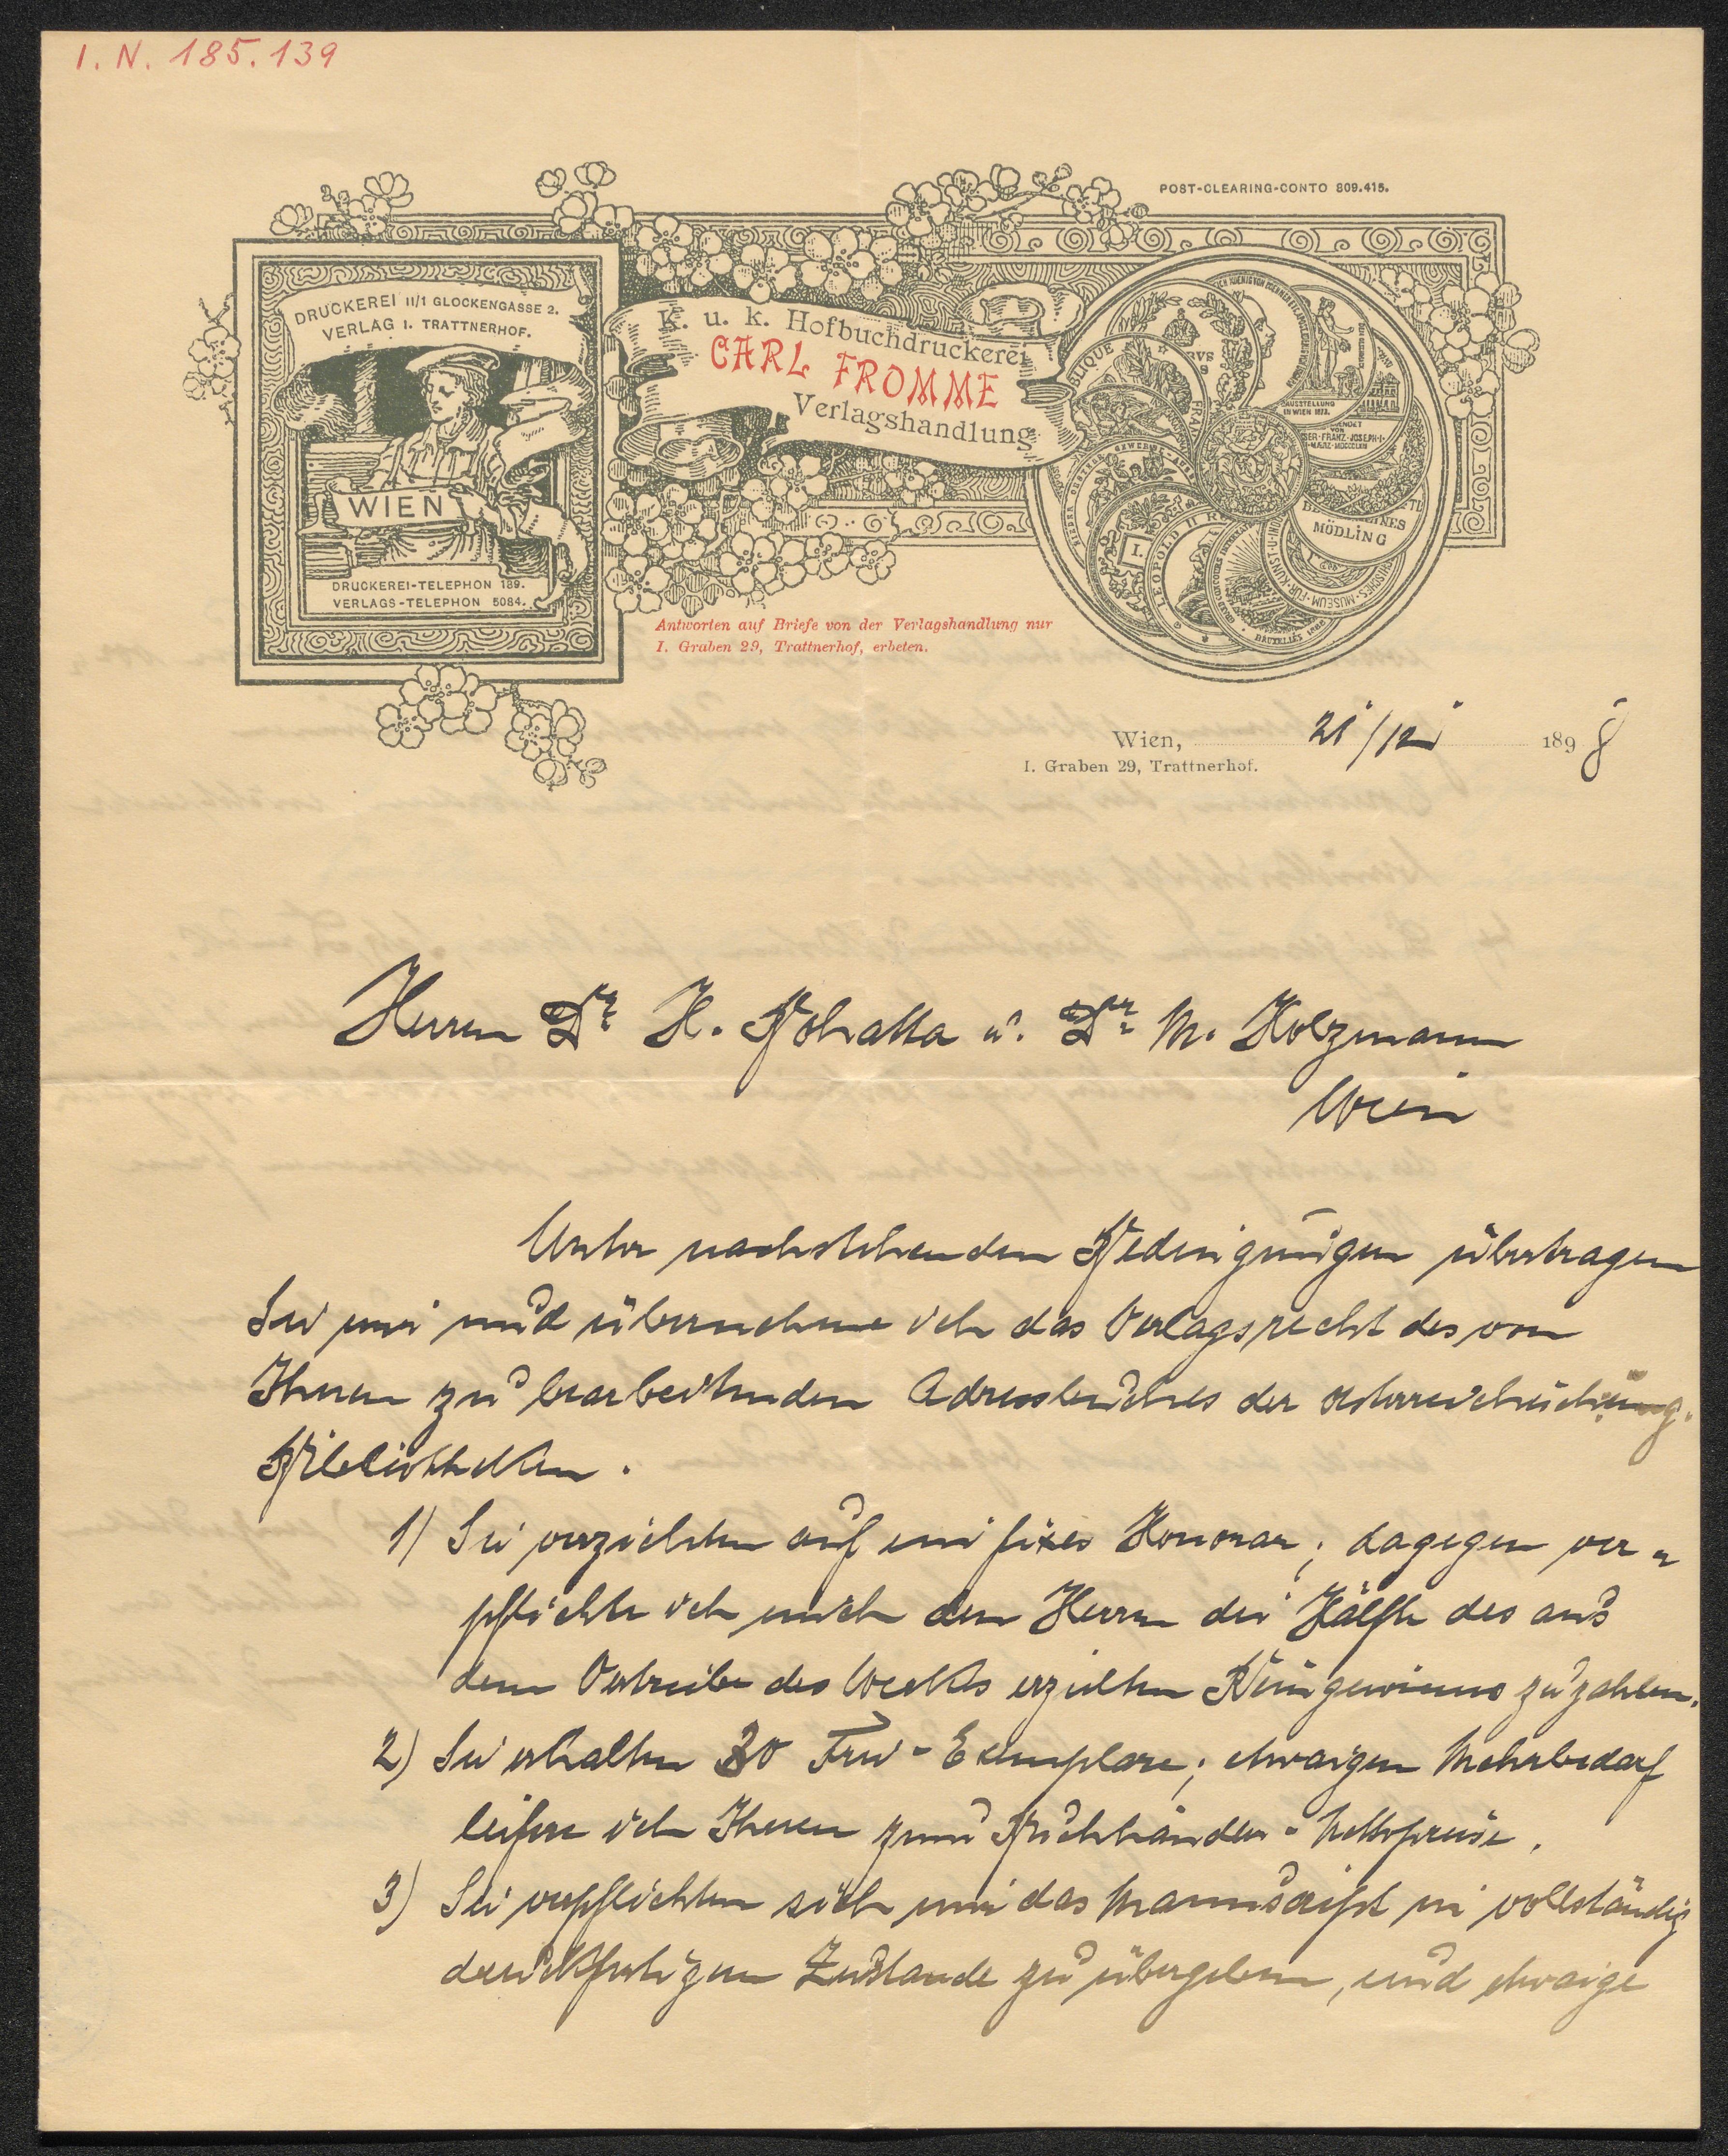 I. N. 185.139
POST-CLEARING-CONTO 809.415.
DRUCKEREI II/1 GLOCKENGASSE 2.
VERLAG I. TRATTNERHOF.
WIEN
DRUCKEREI-TELEPHON 189.
VERLAGS-TELEPHON 5084.
K. u. k. Hofbuchdruckerei
CARL FROMME
Verlagshandlung
BLIQUE
FRAN
AUSSTELLUNG
IN WIEN 1873.
SER·FRANZ·JOSEPH·I·
MÖDLING
LEOPOLD II R
I.
BRUXELLES 1888
Antworten auf Briefe von der Verlagshandlung nur
I. Graben 29, Trattnerhof, erbeten.
Wien, 21/12 1898
I. Graben 29, Trattnerhof.
Herren Dr. H. Bohatta u. Dr. M. Holzmann
Wien
Unter nachstehenden Bedingungen übertragen
Sie mir und übernehme ich das Verlagsrecht des von
Ihnen zu bearbeitenden Adressbuches der
Bibliotheken.
1) Sie verzichten auf ein fixes Honorar; dagegen ver-
pflichte ich mich den Herren die Hälfte des aus
dem Vertriebe des Werkes erzielten Reingewinns zu zahlen.
2) Sie erhalten 30 Frei-Exemplare; etwaigen Mehrbedarf
liefere ich Ihnen zum Buchhändler-Nettopreise.
3) Sie verpflichten sich mir das Manuscript in vollständig
druckfertigem Zustande zu übergeben, und etwaige